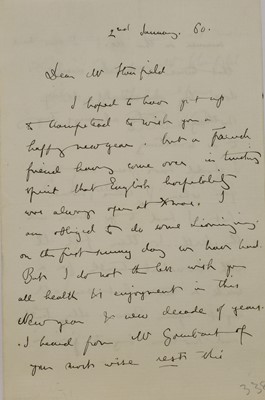 2nd January. 60.
Dear Mr Stanfield
I hoped to have got up
to Hampstead to wish you a
happy new year - but a French
friend having come over in trusting
spirit that English hospitality
was always open at Xmas. I
am obliged to do some Lionizing
on the first sunny day we have had.
But I do not the less wish you
all health & enjoyment in this
New year & new decade of years.
I heard from Mr Gambart of
your most wise this
338